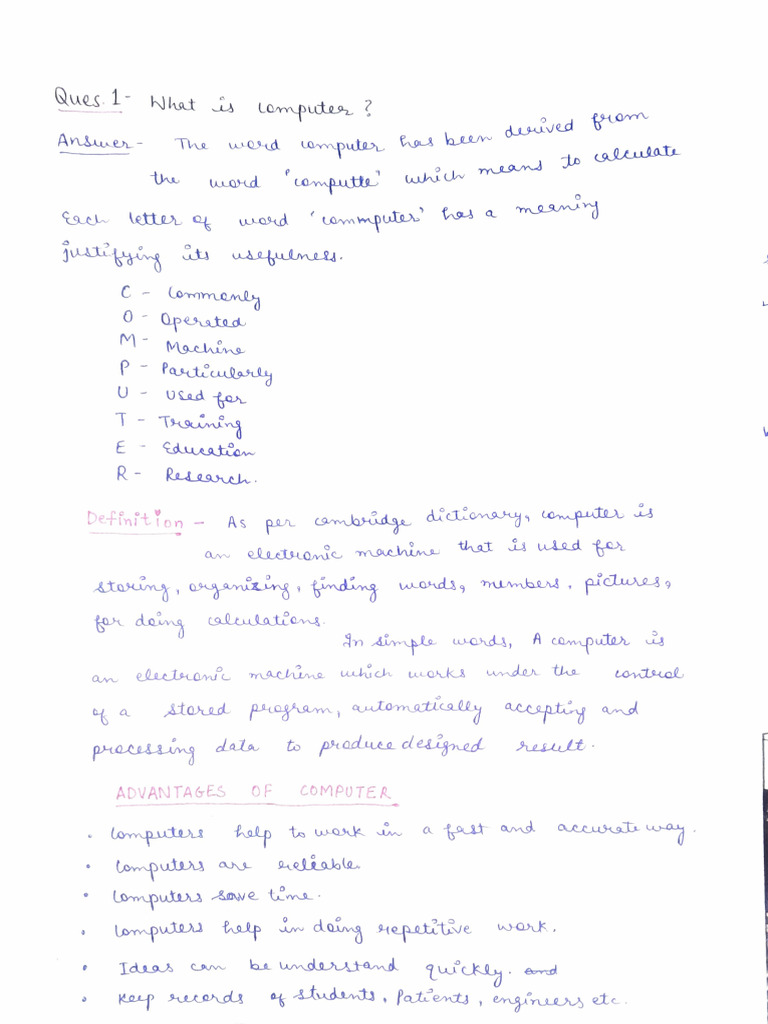 Ques. 1- What is computer?
Answer - The word computer has been derived from
the word 'computte' which means to calculate
Each letter of word 'commputer' has a meaning
justifying its usefulness.
C - Commonly
O - Operated
M - Machine
P - Particularly
U - Used for
T - Training
E - Education
R - Research.
Definition - As per cambridge dictionary, computer is
an electronic machine that is used for
storing, organizing, finding words, members, pictures,
for doing calculations.
In simple words, A computer is
an electronic machine which works under the control
of a stored program, automatically accepting and
processing data to produce designed result.
ADVANTAGES OF COMPUTER
• Computers help to work in a fast and accurate way.
• Computers are reliable.
• Computers save time.
• Computers help in doing repetitive work.
• Ideas can be understand quickly. and
• Keep records of students, Patients, engineers etc.